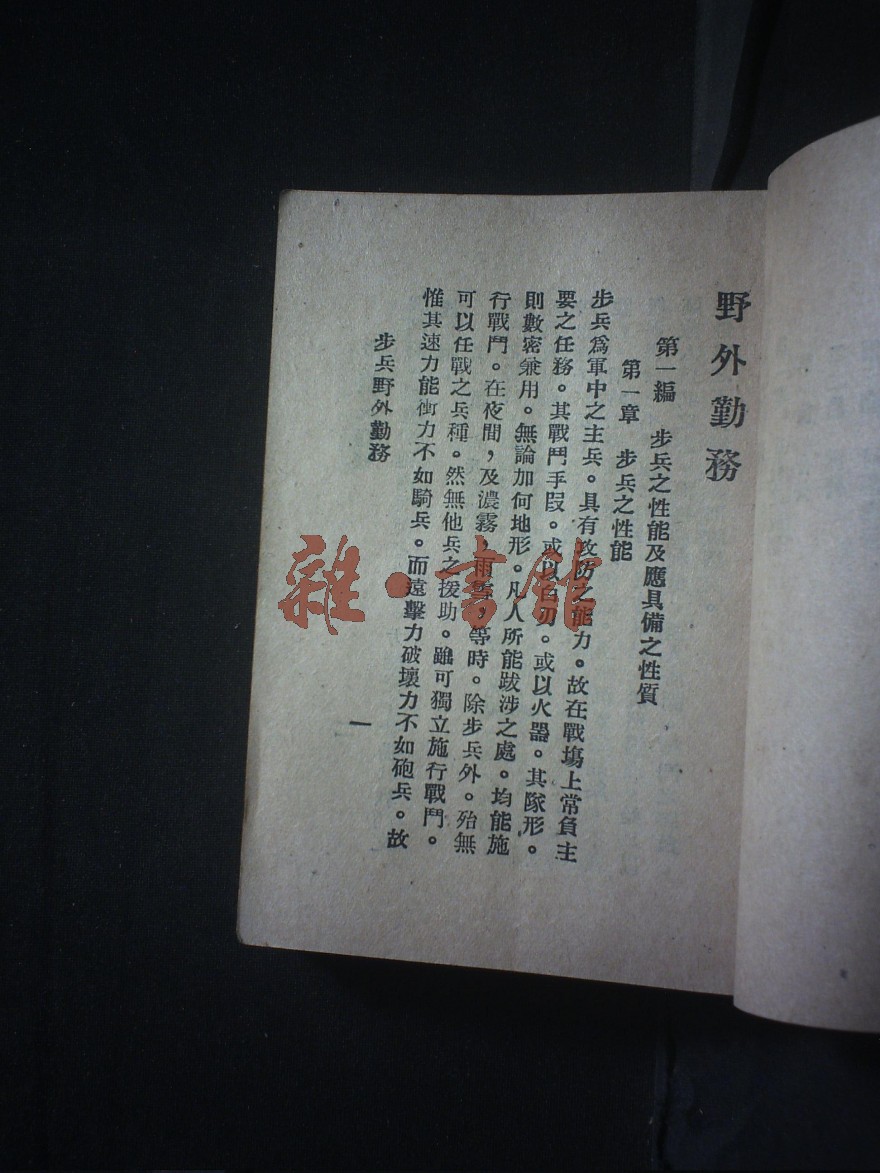 野外勤務
第一編 步兵之性能及應具備之性質
第一章 步兵之性能
步兵爲軍中之主兵。具有攻防之能力。故在戰塲上常負主
要之任務。其戰鬥手段。或以白刃。或以火器。其隊形。
則數密兼用。無論加何地形。凡人所能跋涉之處。均能施
行戰鬥。在夜間,及濃霧,雨雪,等時。除步兵外。殆無
可以任戰之兵種。然無他兵之援助。雖可獨立施行戰鬥。
惟其速力能衝力不如騎兵。而遠擊力破壞力不如砲兵。故
步兵野外勤務
一
雜·書館